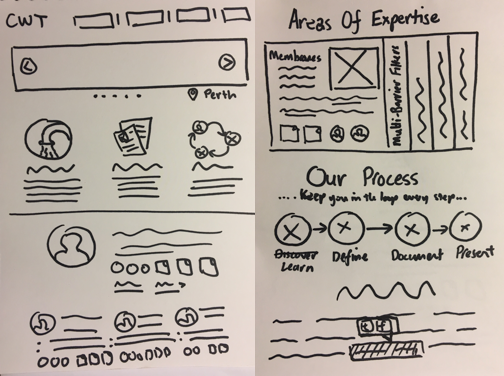 CWT
Perth
Areas Of Expertise
Membranes
Multi-Barrier Filters
Our Process
.... Keep you in the loop every step...
Discover
Learn
Define
Document
Present